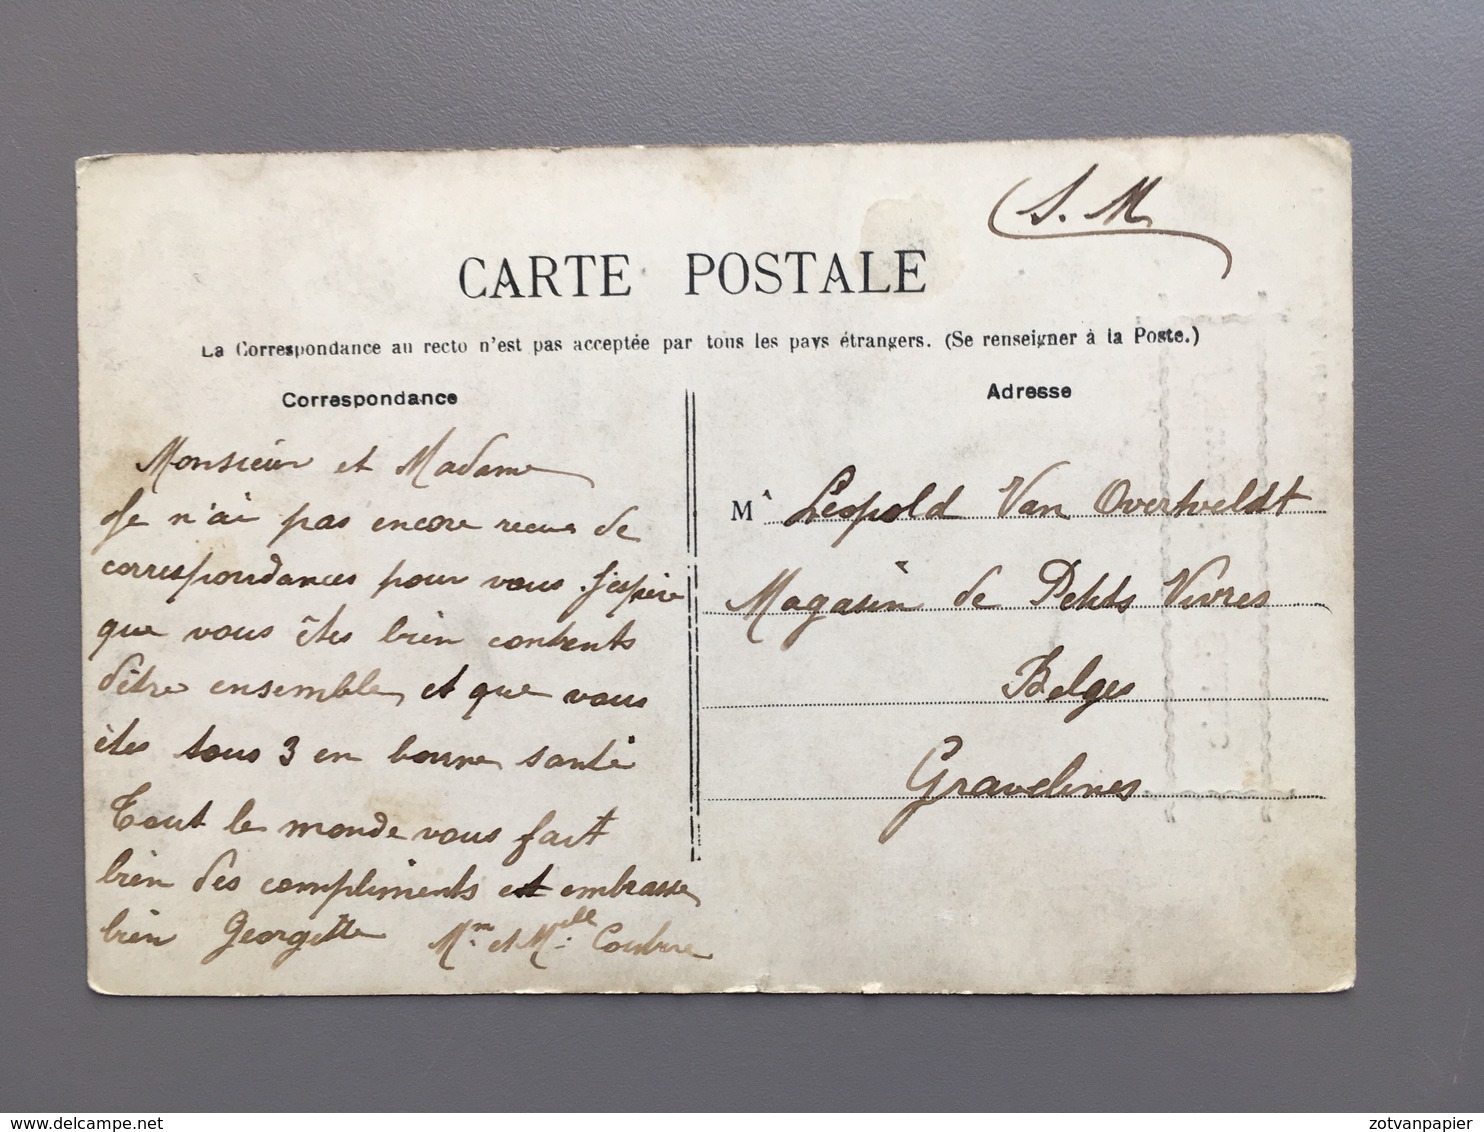 S. M
CARTE POSTALE
La Correspondance au recto n'est pas acceptée par tous les pays étrangers. (Se renseigner à la Poste.)
Correspondance
Monsieur et Madame
Je n'ai pas encore recue de
correspondances pour vous. J'espère
que vous êtes bien contents
d'être ensemble, et que vous
êtes tous 3 en bonne santé
Tout le monde vous fait
bien des compliments et embrasse
bien Georgette Mm. et Melle.
Adresse
M Léopold Van Overtveldt
Magasin de Petits Vivres
Belges
Gravelines
delcampe.net
zotvanpapier